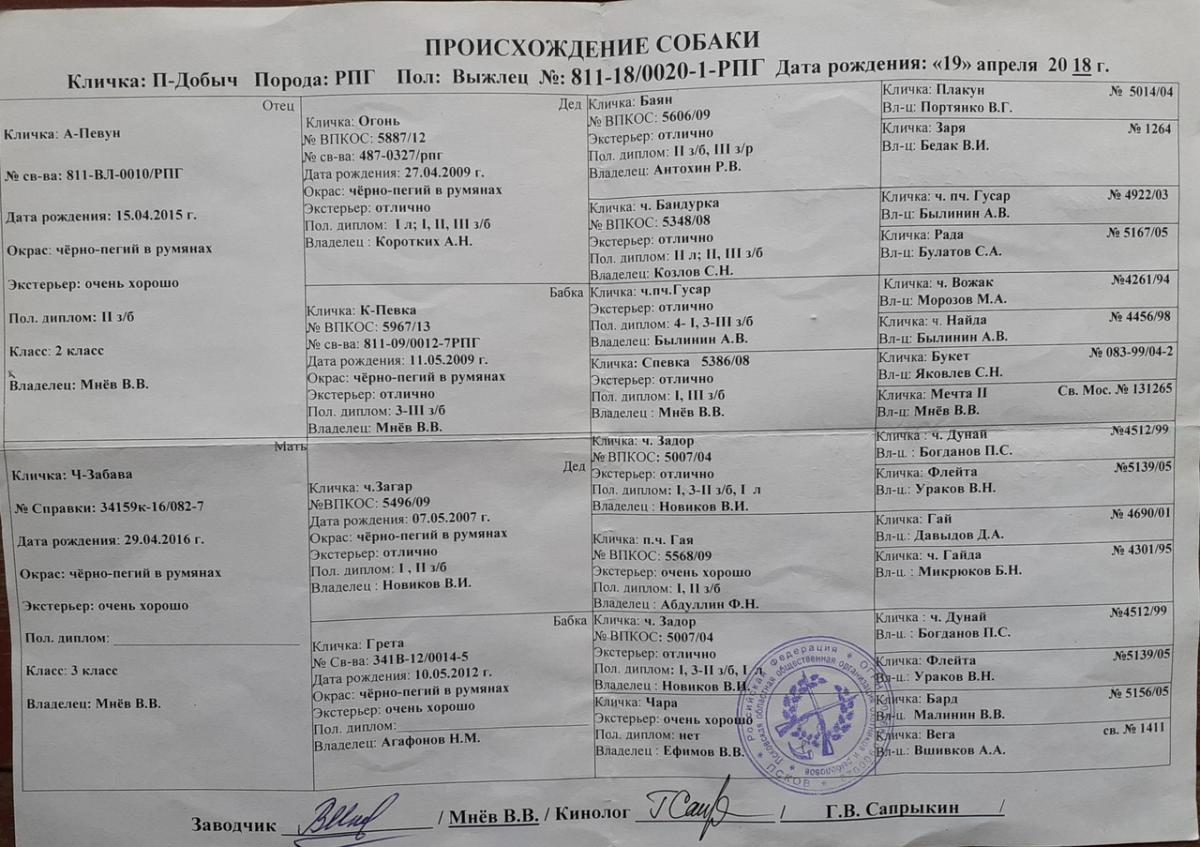 ПРОИСХОЖДЕНИЕ СОБАКИ
Кличка: П-Добыч Порода: РПГ Пол: Выжлец №: 811-18/0020-1-РПГ Дата рождения: «19» апреля 20 18 г.
Отец
Кличка: А-Певун
№ св-ва: 811-ВЛ-0010/РПГ
Дата рождения: 15.04.2015 г.
Окрас: чёрно-пегий в румянах
Экстерьер: очень хорошо
Пол. диплом: II з/б
Класс: 2 класс
Владелец: Мнёв В.В.
Мать
Кличка: Ч-Забава
№ Справки: 34159к-16/082-7
Дата рождения: 29.04.2016 г.
Окрас: чёрно-пегий в румянах
Экстерьер: очень хорошо
Пол. диплом:
Класс: 3 класс
Владелец: Мнёв В.В.
Дед
Кличка: Огонь
№ ВПКОС: 5887/12
№ св-ва: 487-0327/рпг
Дата рождения: 27.04.2009 г.
Окрас: чёрно-пегий в румянах
Экстерьер: отлично
Пол. диплом: I л; I, II, III з/б
Владелец : Коротких А.Н.
Бабка
Кличка: К-Певка
№ ВПКОС: 5967/13
№ св-ва: 811-09/0012-7РПГ
Дата рождения: 11.05.2009 г.
Окрас: чёрно-пегий в румянах
Экстерьер: отлично
Пол. диплом: 3-III з/б
Владелец: Мнёв В.В.
Дед
Кличка: ч.Загар
№ВПКОС: 5496/09
Дата рождения: 07.05.2007 г.
Окрас: чёрно-пегий в румянах
Экстерьер: отлично
Пол. диплом: I , II з/б
Владелец : Новиков В.И.
Бабка
Кличка: Грета
№ Св-ва: 341В-12/0014-5
Дата рождения: 10.05.2012 г.
Окрас: чёрно-пегий в румянах
Экстерьер: очень хорошо
Пол. диплом:
Владелец: Агафонов Н.М.
Кличка: Баян
№ ВПКОС: 5606/09
Экстерьер: отлично
Пол. диплом: II з/б, III з/р
Владелец: Антохин Р.В.
Кличка: ч. Бандурка
№ ВПКОС: 5348/08
Экстерьер: отлично
Пол. диплом: II л; II, III з/б
Владелец: Козлов С.Н.
Кличка: ч.пч.Гусар
Экстерьер: отлично
Пол. диплом: 4- I, 3-III з/б
Владелец: Былинин А.В.
Кличка: Спевка 5386/08
Экстерьер: отлично
Пол. диплом: I, III з/б
Владелец : Мнёв В.В.
Кличка: ч. Задор
№ ВПКОС: 5007/04
Экстерьер: отлично
Пол. диплом: I, 3-II з/б, I л
Владелец : Новиков В.И.
Кличка: п.ч. Гая
№ ВПКОС: 5568/09
Экстерьер: очень хорошо
Пол. диплом: I, II з/б
Владелец : Абдуллин Ф.Н.
Кличка: ч. Задор
№ ВПКОС: 5007/04
Экстерьер: отлично
Пол. диплом: I, 3-II з/б, I л
Владелец : Новиков В.И.
Кличка: Чара
Экстерьер: очень хорошо
Пол. диплом: нет
Владелец : Ефимов В.В.
Кличка: Плакун № 5014/04
Вл-ц: Портянко В.Г.
Кличка: Заря № 1264
Вл-ц: Бедак В.И.
Кличка: ч. пч. Гусар № 4922/03
Вл-ц: Былинин А.В.
Кличка: Рада № 5167/05
Вл-ц: Булатов С.А.
Кличка: ч. Вожак №4261/94
Вл-ц: Морозов М.А.
Кличка: ч. Найда № 4456/98
Вл-ц: Былинин А.В.
Кличка: Букет № 083-99/04-2
Вл-ц: Яковлев С.Н.
Кличка: Мечта II Св. Мос. № 131265
Вл-ц: Мнёв В.В.
Кличка : ч. Дунай №4512/99
Вл-ц. : Богданов П.С.
Кличка: Флейта №5139/05
Вл-ц.: Ураков В.Н.
Кличка: Гай № 4690/01
Вл-ц: Давыдов Д.А.
Кличка: ч. Гайда № 4301/95
Вл-ц. : Микрюков Б.Н.
Кличка : ч. Дунай №4512/99
Вл-ц. : Богданов П.С.
Кличка: Флейта №5139/05
Вл-ц.: Ураков В.Н.
Кличка: Бард № 5156/05
Вл-ц. Малинин В.В.
Кличка: Вега св. № 1411
Вл-ц.: Вшивков А.А.
Российская Федерация
Псковская областная общественная организация охотников и рыболовов
ПСКОВ
Заводчик / Мнёв В.В. / Кинолог / Г.В. Сапрыкин /